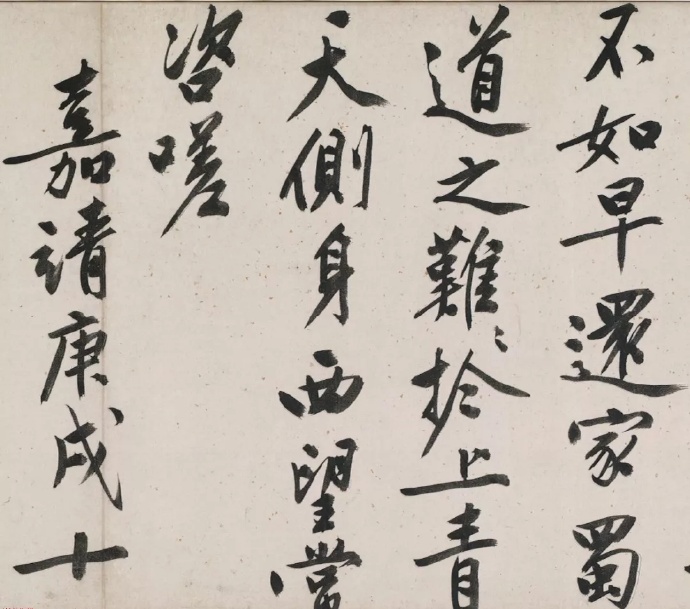 不如早還家蜀
道之難〻於上青
天側身西望常
咨嗟
嘉靖庚戌十